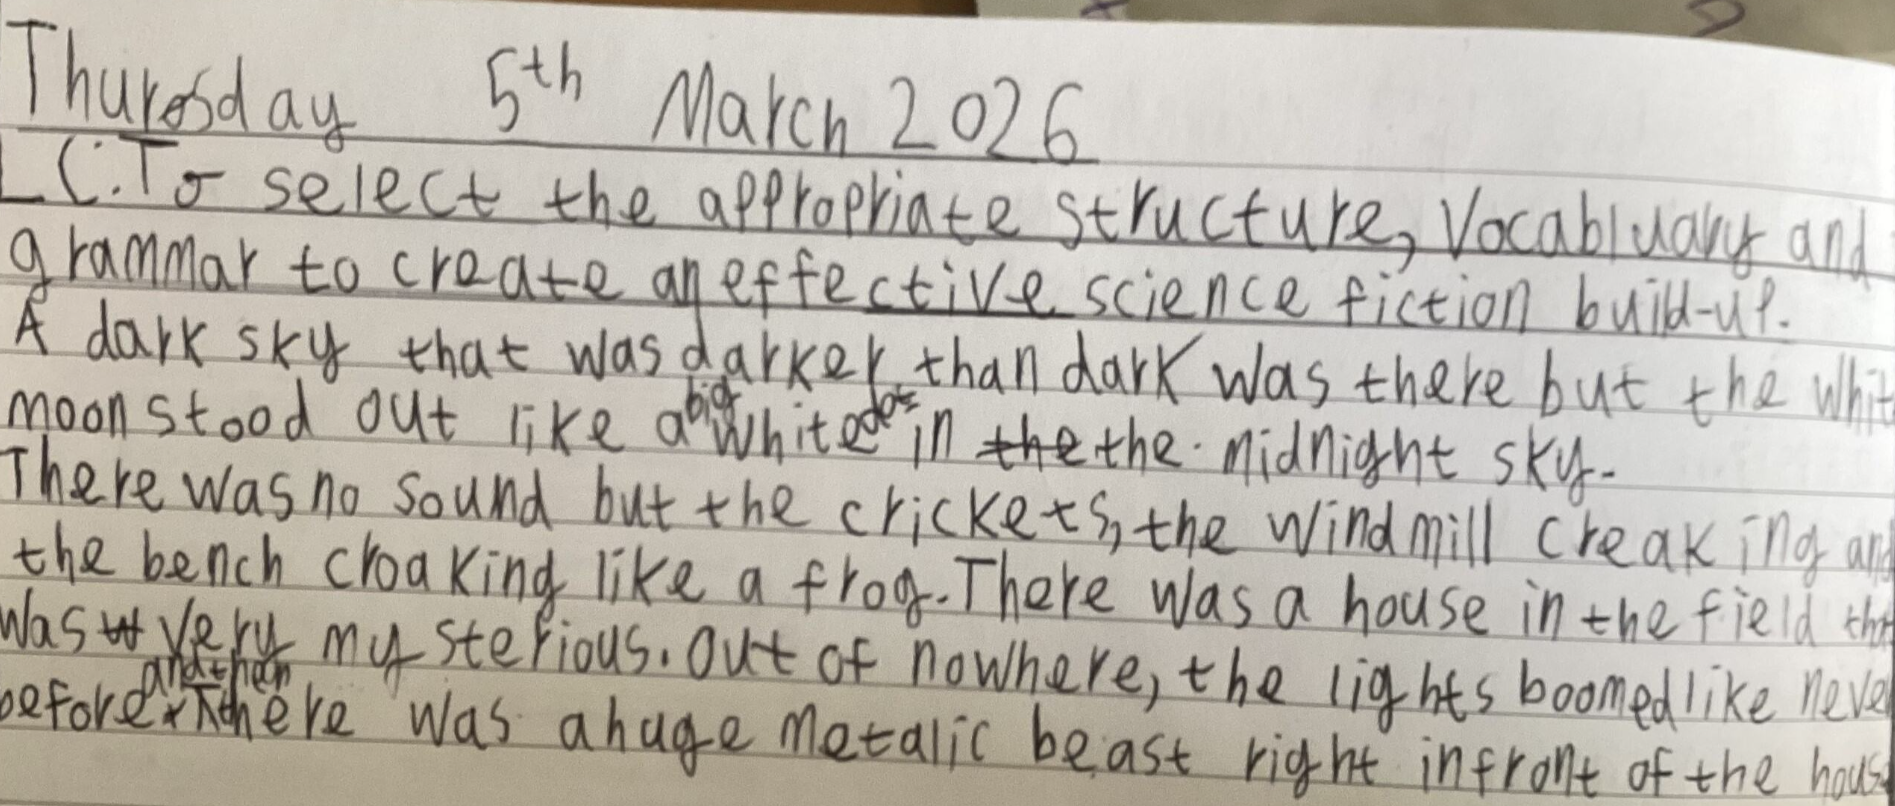 Thursday 5th March 2026
LC: To select the appropriate structure, vocabluary and
grammar to create an effective science fiction build-up.
A dark sky that was darker than dark was there but the whit
moon stood out like a big white dot in the the midnight sky.
There was no sound but the crickets, the windmill creaking and
the bench croaking like a frog. There was a house in the field that
was very mysterious. Out of nowhere, the lights boomed like neve
before and than there was a huge metalic beast right infront of the hous